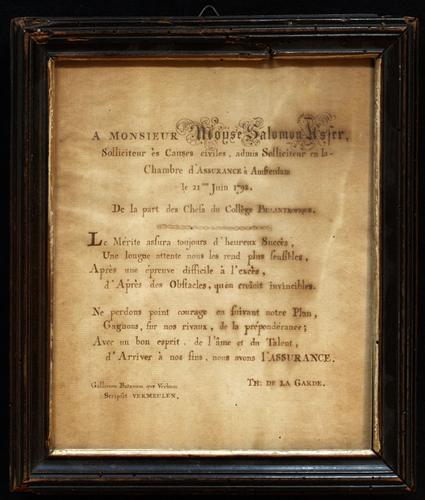 A MONSIEUR Moÿse Salomon Asser,
Solliciteur ès Causes civiles, admis Solliciteur en la
Chambre d'ASSURANCE à Amsterdam
le 21me Juin 1798.
De la part des Chefs du Collège
Le Mérite assura toujours d'heureux Succès,
Une longue attente nous les rend plus sensibles,
Après une épreuve difficile à l'excès,
d'Après des Obstacles, qu'en croïoit invincibles.
Ne perdons point courage en suivant notre Plan,
Gagnons, sur nos rivaux, de la prépondérance;
Avec un bon esprit, de l'âme et du Talent,
d'Arriver à nos fins, nous avons l'ASSURANCE.
TH: DE LA GARDE.
Scripsit VERMEULEN.